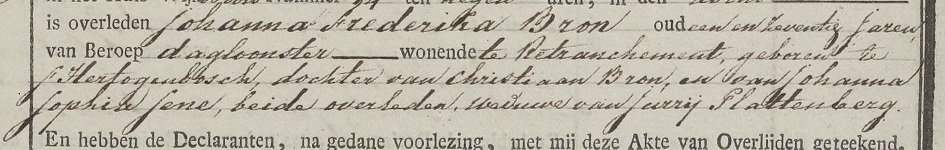 is overleden Johanna Frederika Bron oud een en zeventig Jaren,
van Beroep dagloonster wonende te Retranchement, geboren te
s'Hertogenbosch, dochter van Christiaan Bron, en van Johanna
Sophia Jene, beide overleden, weduwe van Jurrij Plattenberg.
En hebben de Declaranten, na gedane voorlezing, met mij deze Akte van Overlijden geteekend.